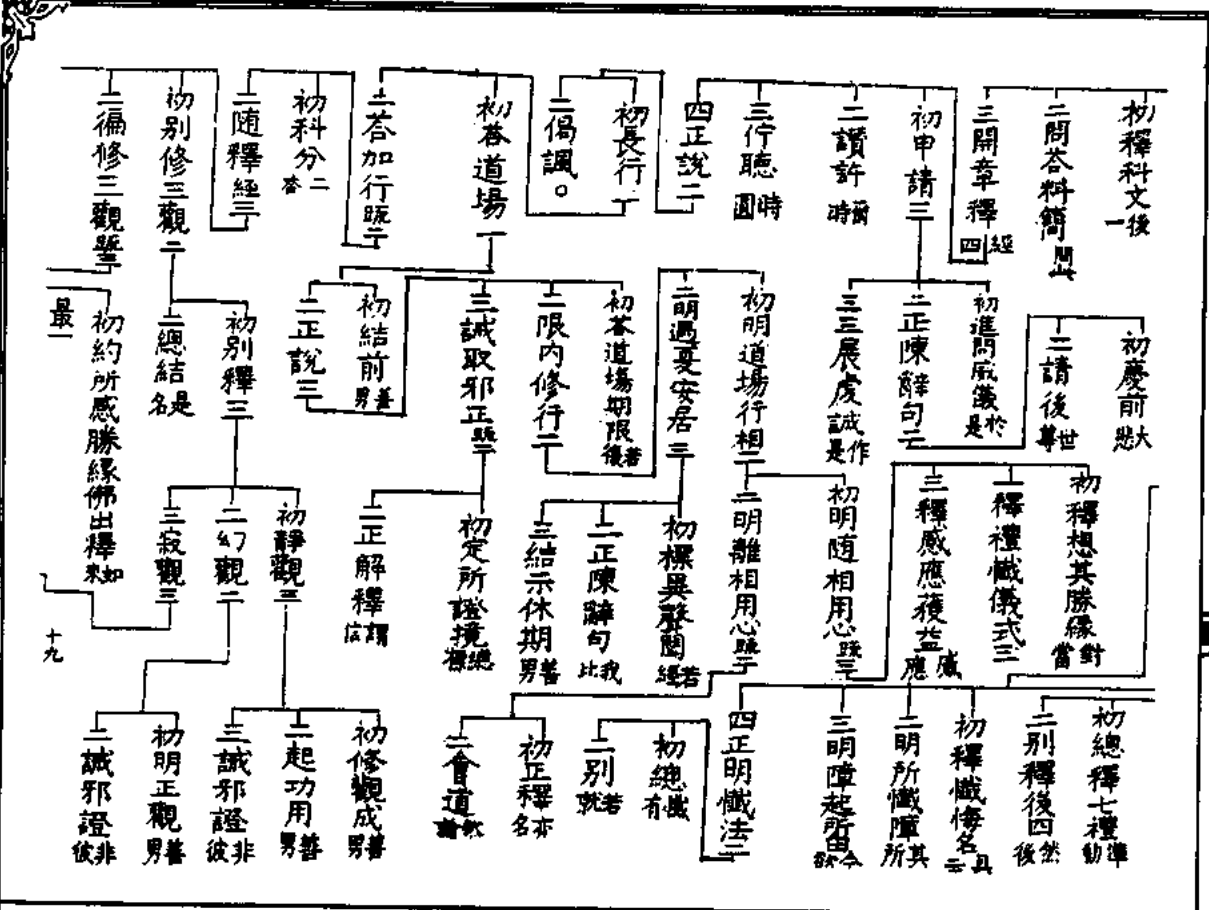 初釋科文後一
二問答料簡
三開章釋經四
初申請三
二讚許爾時
三佇聽時圓
四正說二
初長行二
二偈諷○
初答道場一
二答加行二
初科分二
二隨釋經三
初別修三觀二
二徧修三觀
初慶前大悲
二請後世尊
初進問威儀於是
二正陳辭句二
三三展虔誠作是
初明道場行相二
二明過夏安居三
初答道場期限若後
二限內修行二
三誡取邪正
初結前善男
二正說三
初別釋三
二總結是名
初約所感勝緣佛出釋如來
最一
初釋想其勝緣對當
二釋禮懺儀式三
三釋感應獲益感應
初明隨相用心
二明離相用心
初標異聲聞若經
二正陳辭句我比
三結示休期善男
初定所證境總標
二正解釋謂信
初靜觀三
二幻觀二
三寂觀三
十九
初總釋七禮準動
二別釋後四然後
初釋懺悔名具云
二明所懺障其所
三明障起所由今
四正明懺法二
初總懺有
二別若就
初正釋亦名
二會道
初修觀成善男
二起功用善男
三誡邪證非彼
初明正觀善男
二誡邪證非彼